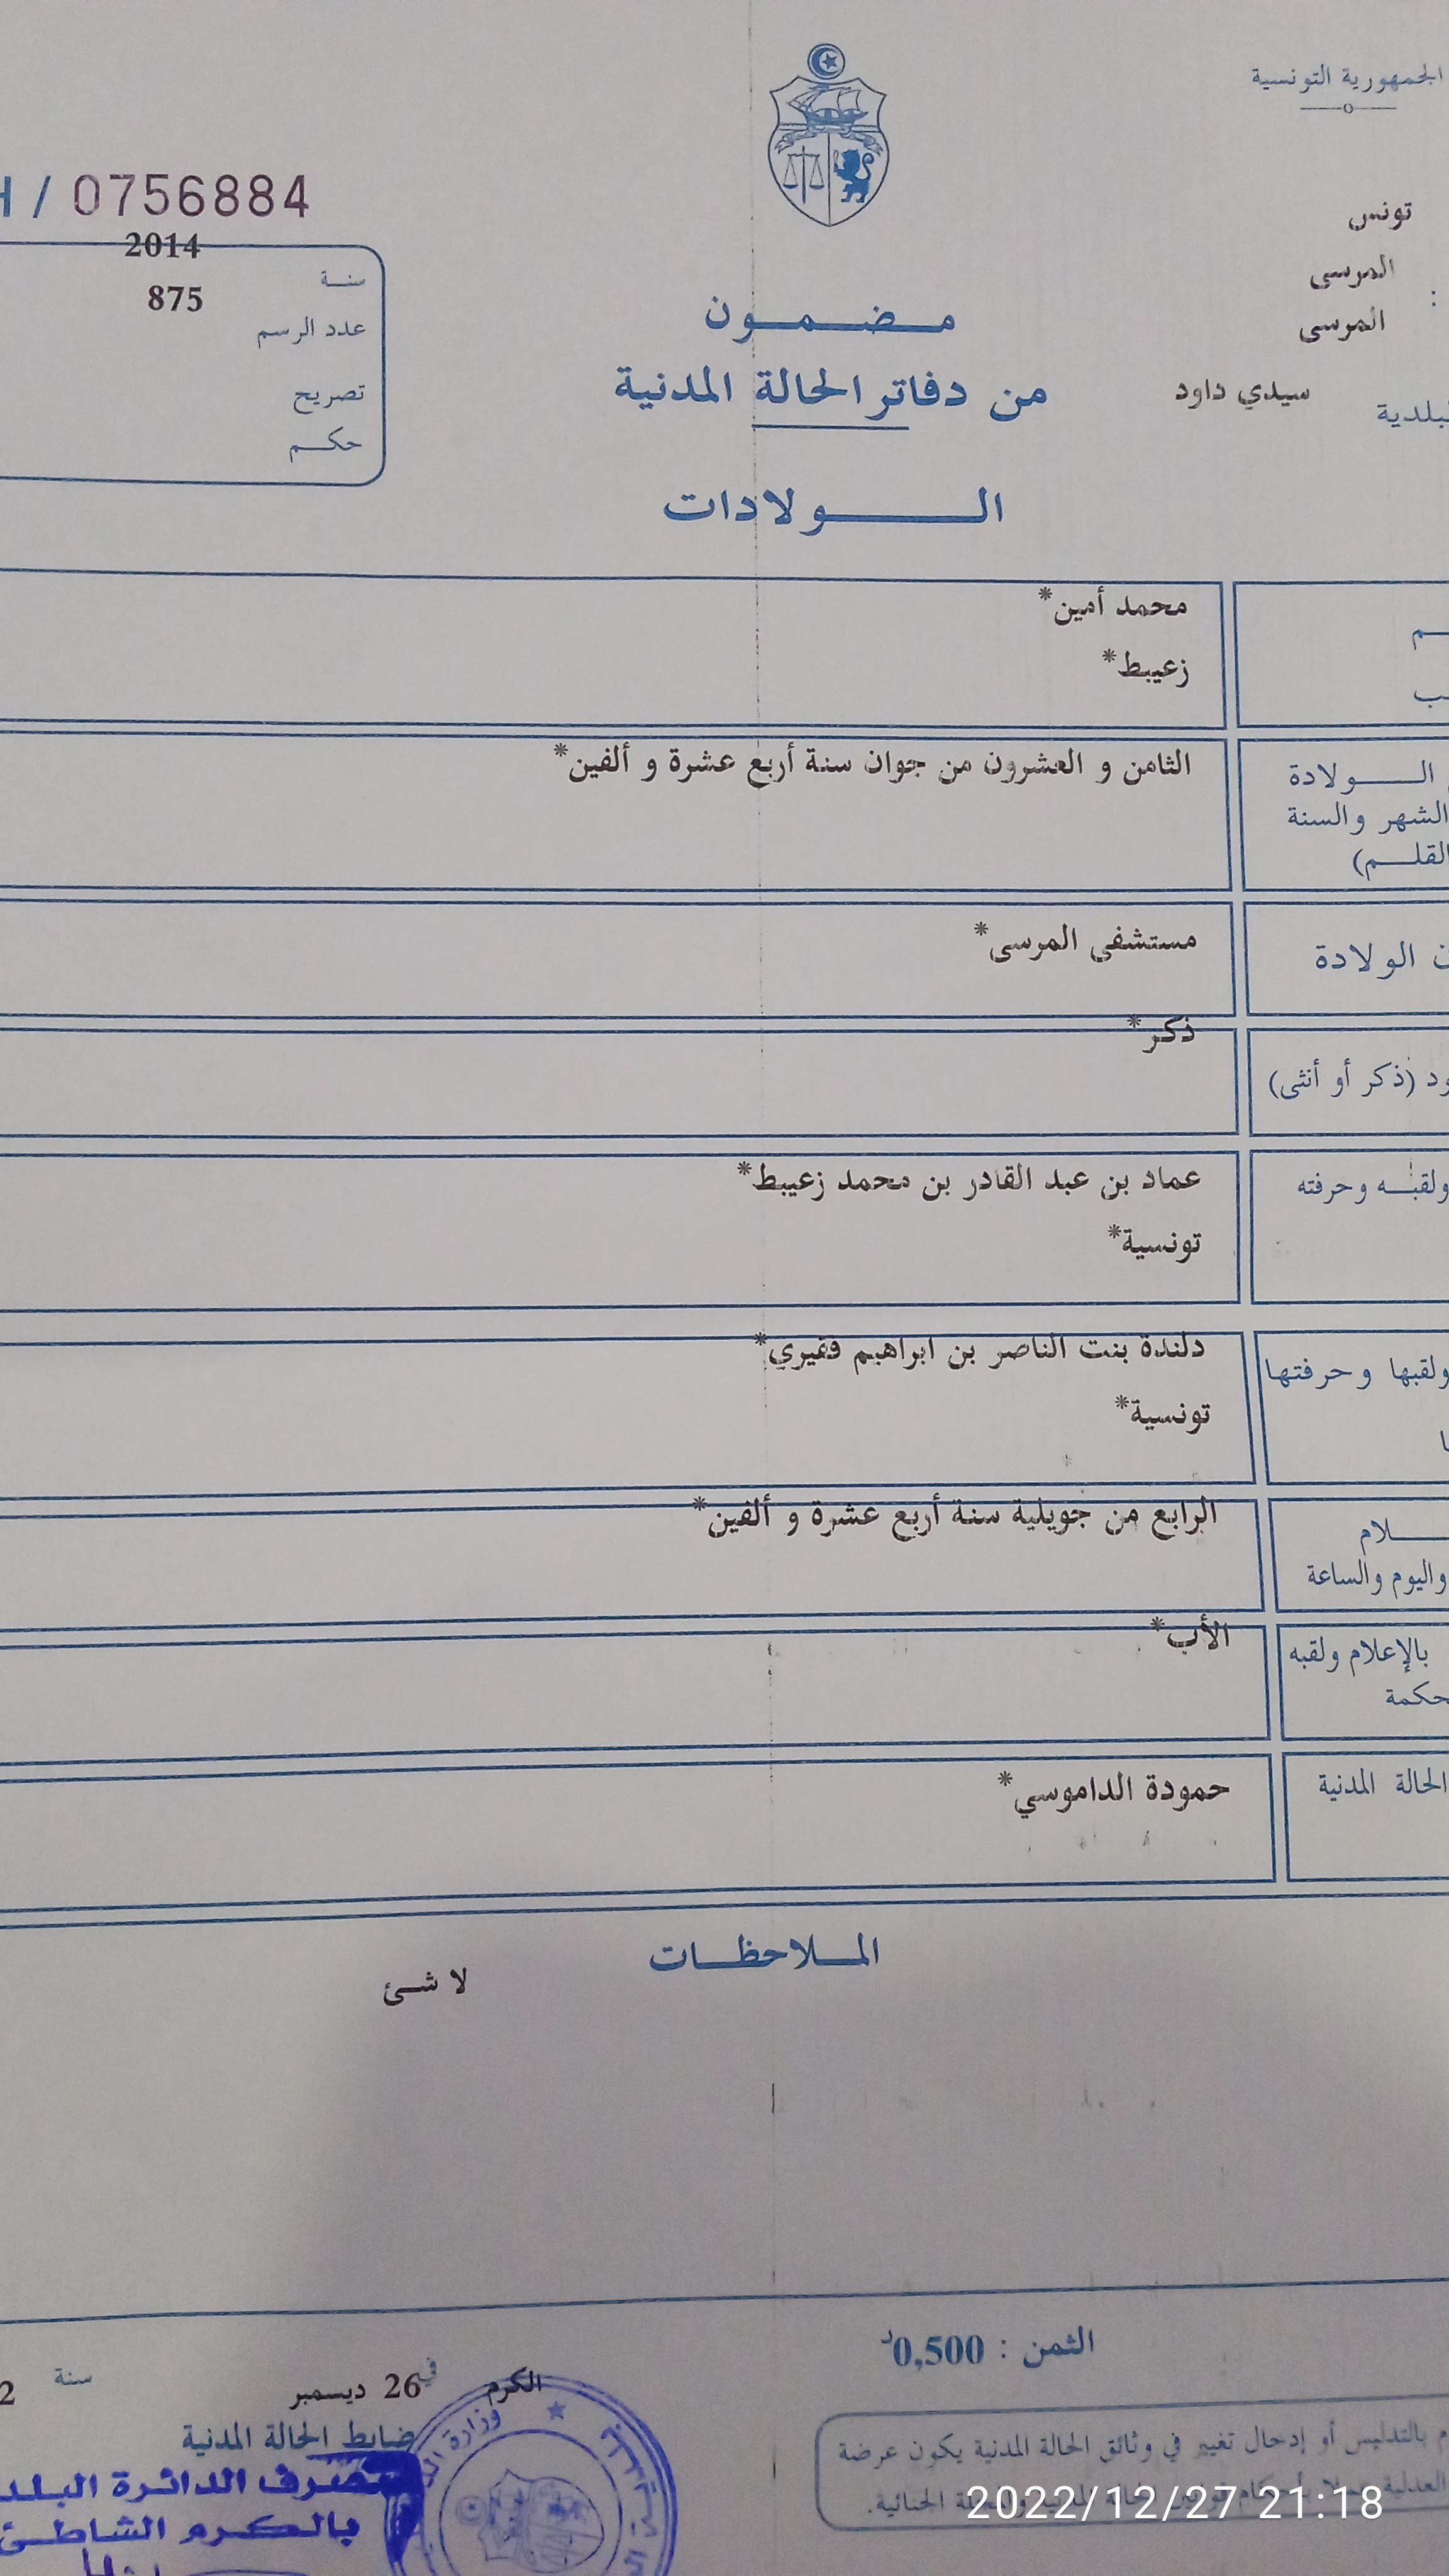 الجمهورية التونسية
H / 0756884
تونس
المرسى
المرسى
سيدي داود
2014
سنة
875
عدد الرسم
تصريح
حكم
مضمون
من دفاتر الحالة المدنية
الولادات
محمد أمين*
زعيبط*
الولادة
الثامن و العشرون من جوان سنة أربع عشرة و ألفين*
الشهر والسنة
القلم)
الولادة
مستشفى المرسى*
ذكر*
(ذكر أو أنثى)
ولقبه وحرفته
عماد بن عبد القادر بن محمد زعيبط*
تونسية*
ولقبها وحرفتها
دلندة بنت الناصر بن ابراهيم قميري*
تونسية*
الرابع من جويلية سنة أربع عشرة و ألفين*
واليوم والساعة
الأب*
بالإعلام ولقبه
حمودة الداموسي*
الحالة المدنية
الملاحظات
لا شئ
الثمن : 0,500د
الكرم في 26 ديسمبر سنة
ضابط الحالة المدنية
بالتدليس أو إدخال تغيير في وثائق الحالة المدنية يكون عرضة
الجنائية.
متصرف الدائرة
بالكرم الشاطئ
وزارة
2022/12/27 21:18